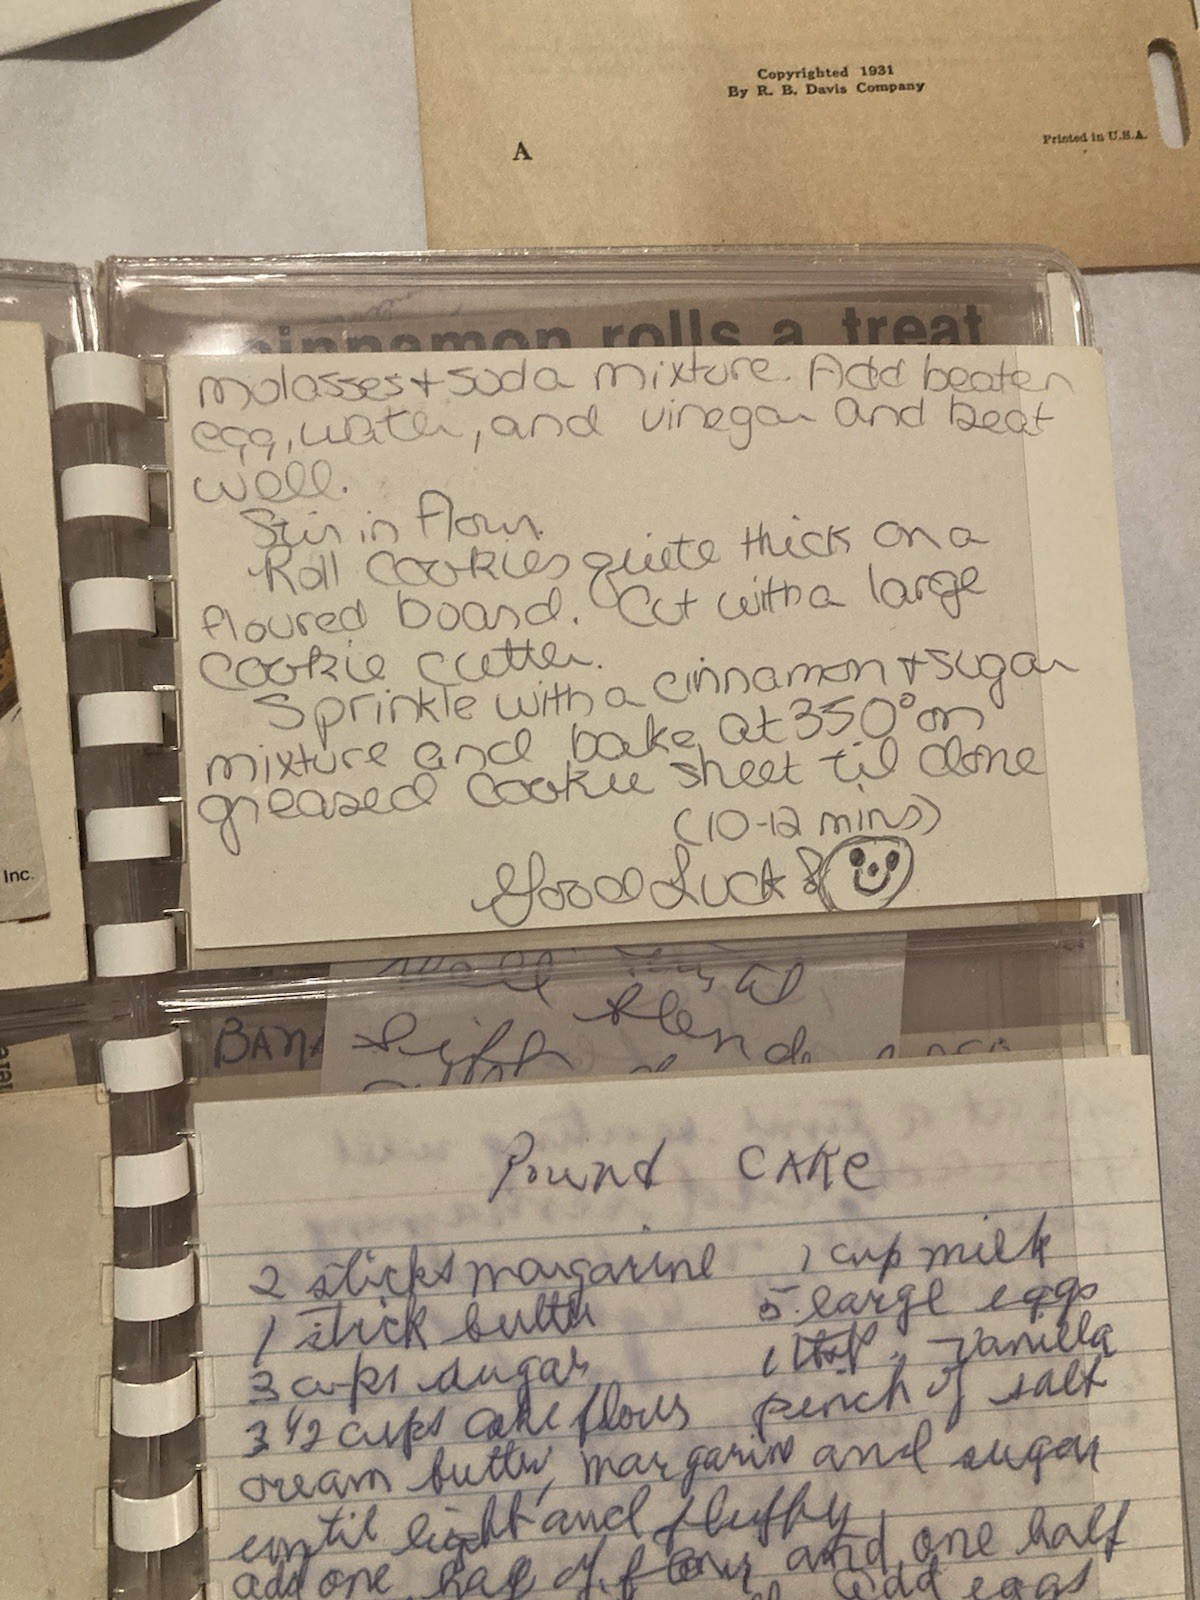 Copyrighted 1931
By R. B. Davis Company
Printed in U.S.A.
A
cinnamon rolls a treat
molasses + soda mixture. Add beaten
egg, water, and vinegar and beat
well.
Stir in flour.
Roll cookies quiete thick on a
floured board. Cut with a large
cookie cutter.
Sprinkle with a cinnamon + sugar
mixture and bake at 350° on
greased cookie sheet til done
(10-12 mins)
Good Luck!
Inc.
BANA
blend
Pound CAKe
2 sticks margarine 1 cup milk
1 stick butter 5 large eggs
3 cups sugar 1 vanilla
3 1/2 cups cake flour pinch of salt
cream butter, margarine and sugar
until light and fluffy
add one half of flour and one half
add eggs